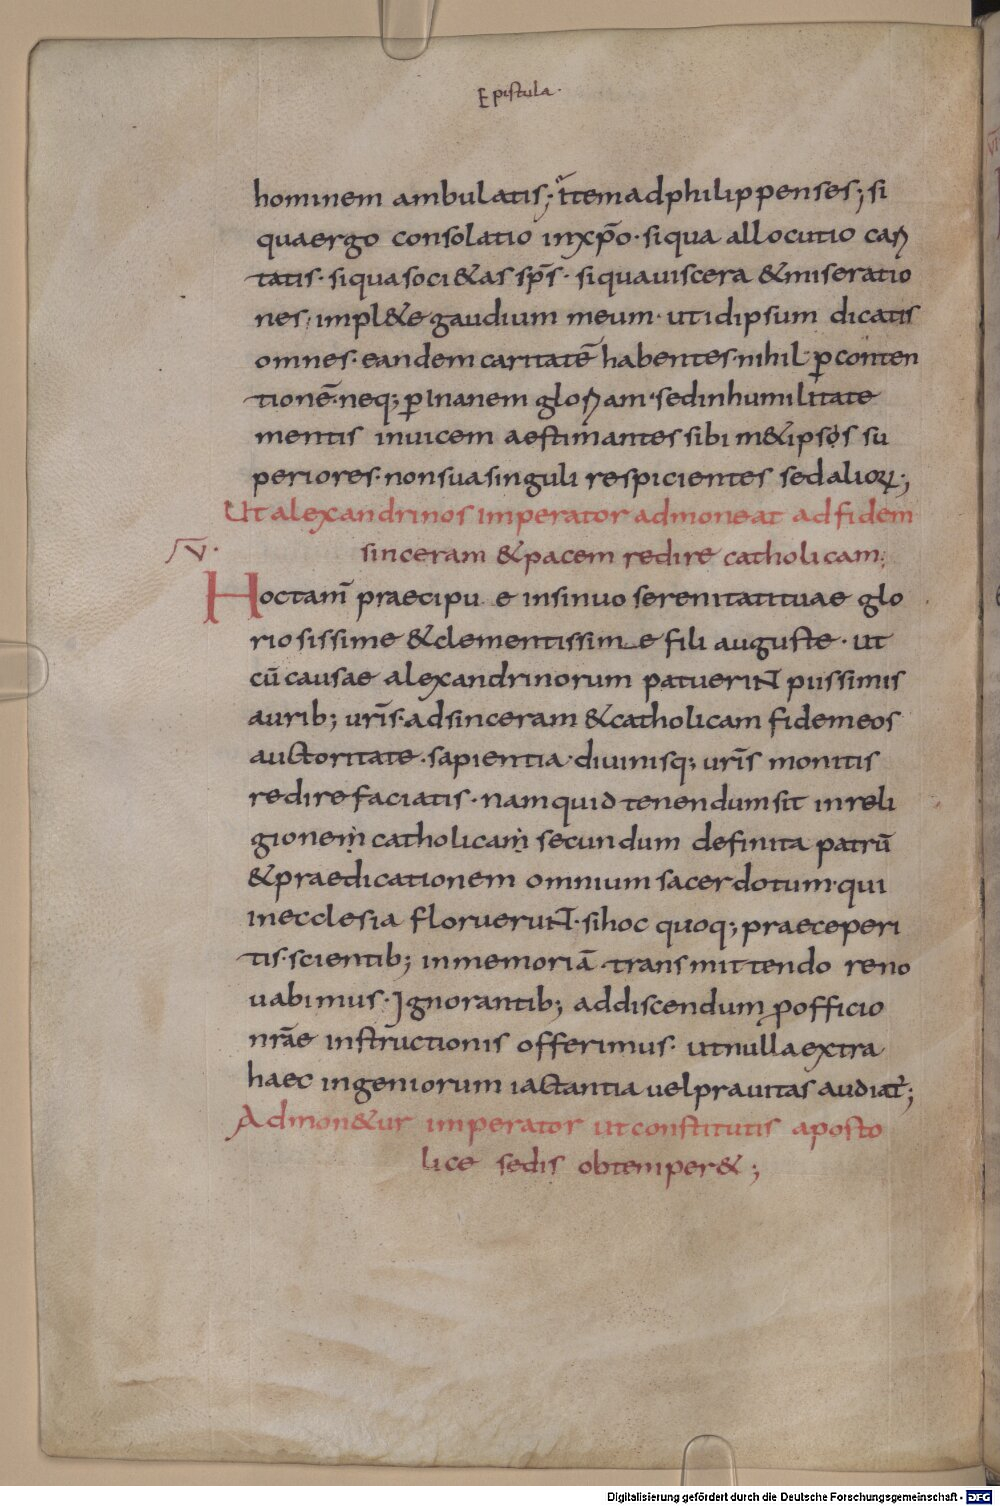 Epistula·
hominem ambulatis;· Item ad philippenses; si
qua ergo consolatio in xp̄o· si qua allocutio cari
tatis· si qua soci&as sp̄s· si qua uiscera & miseratio
nes; impl&e gaudium meum· ut idipsum dicatis
omnes· eandem caritatē habentes· nihil ꝑ conten
tionē· neq; ꝑ inanem gloriam· sed in humilitate
mentis inuicem aestimantes sibi m&ipsos su
periores· non sua singuli respicientes sed alioꝝ;
Ut alexandrinos imperator admoneat ad fidem
V· sinceram & pacem redire catholicam;
Hoc tam̄ praecipue insinuo serenitati tuae glo
riosissime & clementissime fili auguste· ut
cū causae alexandrinorum patueriNT piissimis
aurib; ur̄is· ad sinceram & catholicam fidem eos
auctoritate· sapientia· diuinisq; ur̄is monitis
redire faciatis· nam quid tenendum sit in reli
gionem catholicam secundum definita patrū
& praedicationem omnium sacerdotum· qui
in ecclesia florueruNT· si hoc quoq; praeceperi
tis· scientib; in memoriā transmittendo reno
uabimus· Ignorantib; addiscendum p̱ officio
nr̄ae instructionis offerimus· ut nulla extra
haec ingeniorum iactantia uel prauitas audiat̄;
Admon&ur imperator ut constitutis aposto
lice sedis obtemper&;
Digitalisierung gefördert durch die Deutsche Forschungsgemeinschaft - DFG